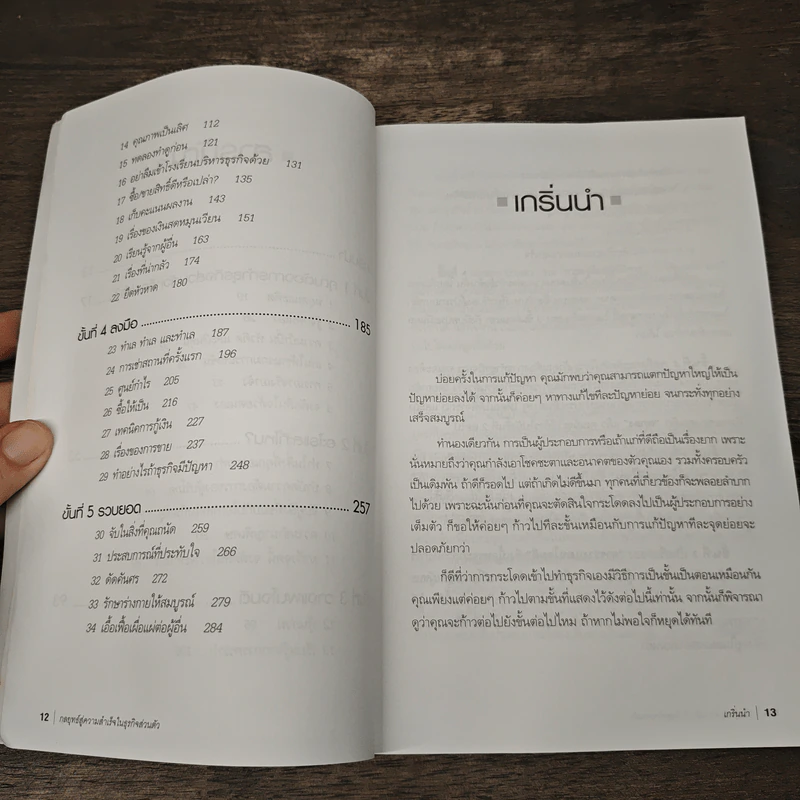 14 คุณภาพเป็นเลิศ 112
15 ทดลองทำดูก่อน 121
16 อย่าลืมเข้าโรงเรียนบริหารธุรกิจด้วย 131
17 ซื้อ/ขายสิทธิ์ดีหรือเปล่า? 135
18 เก็บคะแนนผลงาน 143
19 เรื่องของเงินสดหมุนเวียน 151
20 เรียนรู้จากผู้อื่น 163
21 เรื่องที่น่ากลัว 174
22 ยืดหัวหาด 180
ขั้นที่ 4 ลงมือ 185
23 ทำเล ทำเล และทำเล 187
24 การเช่าสถานที่ครั้งแรก 196
25 ศูนย์กำไร 205
26 ซื้อให้เป็น 216
27 เทคนิคการกู้เงิน 227
28 เรื่องของการขาย 237
29 ทำอย่างไรถ้าธุรกิจมีปัญหา 248
ขั้นที่ 5 รวบยอด 257
30 จับในสิ่งที่คุณถนัด 259
31 ประสบการณ์ที่ประทับใจ 266
32 ตัดคันศร 272
33 รักษาร่างกายให้สมบูรณ์ 279
34 เอื้อเฟื้อเผื่อแผ่ต่อผู้อื่น 284
12 | กลยุทธ์สู่ความสำเร็จในธุรกิจส่วนตัว
เกริ่นนำ
บ่อยครั้งในการแก้ปัญหา คุณมักพบว่าคุณสามารถแตกปัญหาใหญ่ให้เป็น
ปัญหาย่อยลงได้ จากนั้นก็ค่อยๆ หาทางแก้ไขทีละปัญหาย่อย จนกระทั่งทุกอย่าง
เสร็จสมบูรณ์
ทำนองเดียวกัน การเป็นผู้ประกอบการหรือเถ้าแก่ที่ดีถือเป็นเรื่องยาก เพราะ
นั่นหมายถึงว่าคุณกำลังเอาโชคชะตาและอนาคตของตัวคุณเอง รวมทั้งครอบครัว
เป็นเดิมพัน ถ้าดีก็รอดไป แต่ถ้าเกิดไม่ดีขึ้นมา ทุกคนที่เกี่ยวข้องก็จะพลอยลำบาก
ไปด้วย เพราะฉะนั้นก่อนที่คุณจะตัดสินใจกระโดดลงไปเป็นผู้ประกอบการอย่าง
เต็มตัว ก็ขอให้ค่อยๆ ก้าวไปทีละขั้นเหมือนกับการแก้ปัญหาทีละจุดย่อยจะ
ปลอดภัยกว่า
ก็ดีที่ว่าการกระโดดเข้าไปทำธุรกิจเองมีวิธีการเป็นขั้นเป็นตอนเหมือนกัน
คุณเพียงแต่ค่อยๆ ก้าวไปตามขั้นที่แสดงไว้ดังต่อไปนี้เท่านั้น จากนั้นก็พิจารณา
ดูว่าคุณจะก้าวต่อไปยังขั้นต่อไปไหม ถ้าหากไม่พอใจก็หยุดได้ทันที
เกริ่นนำ | 13